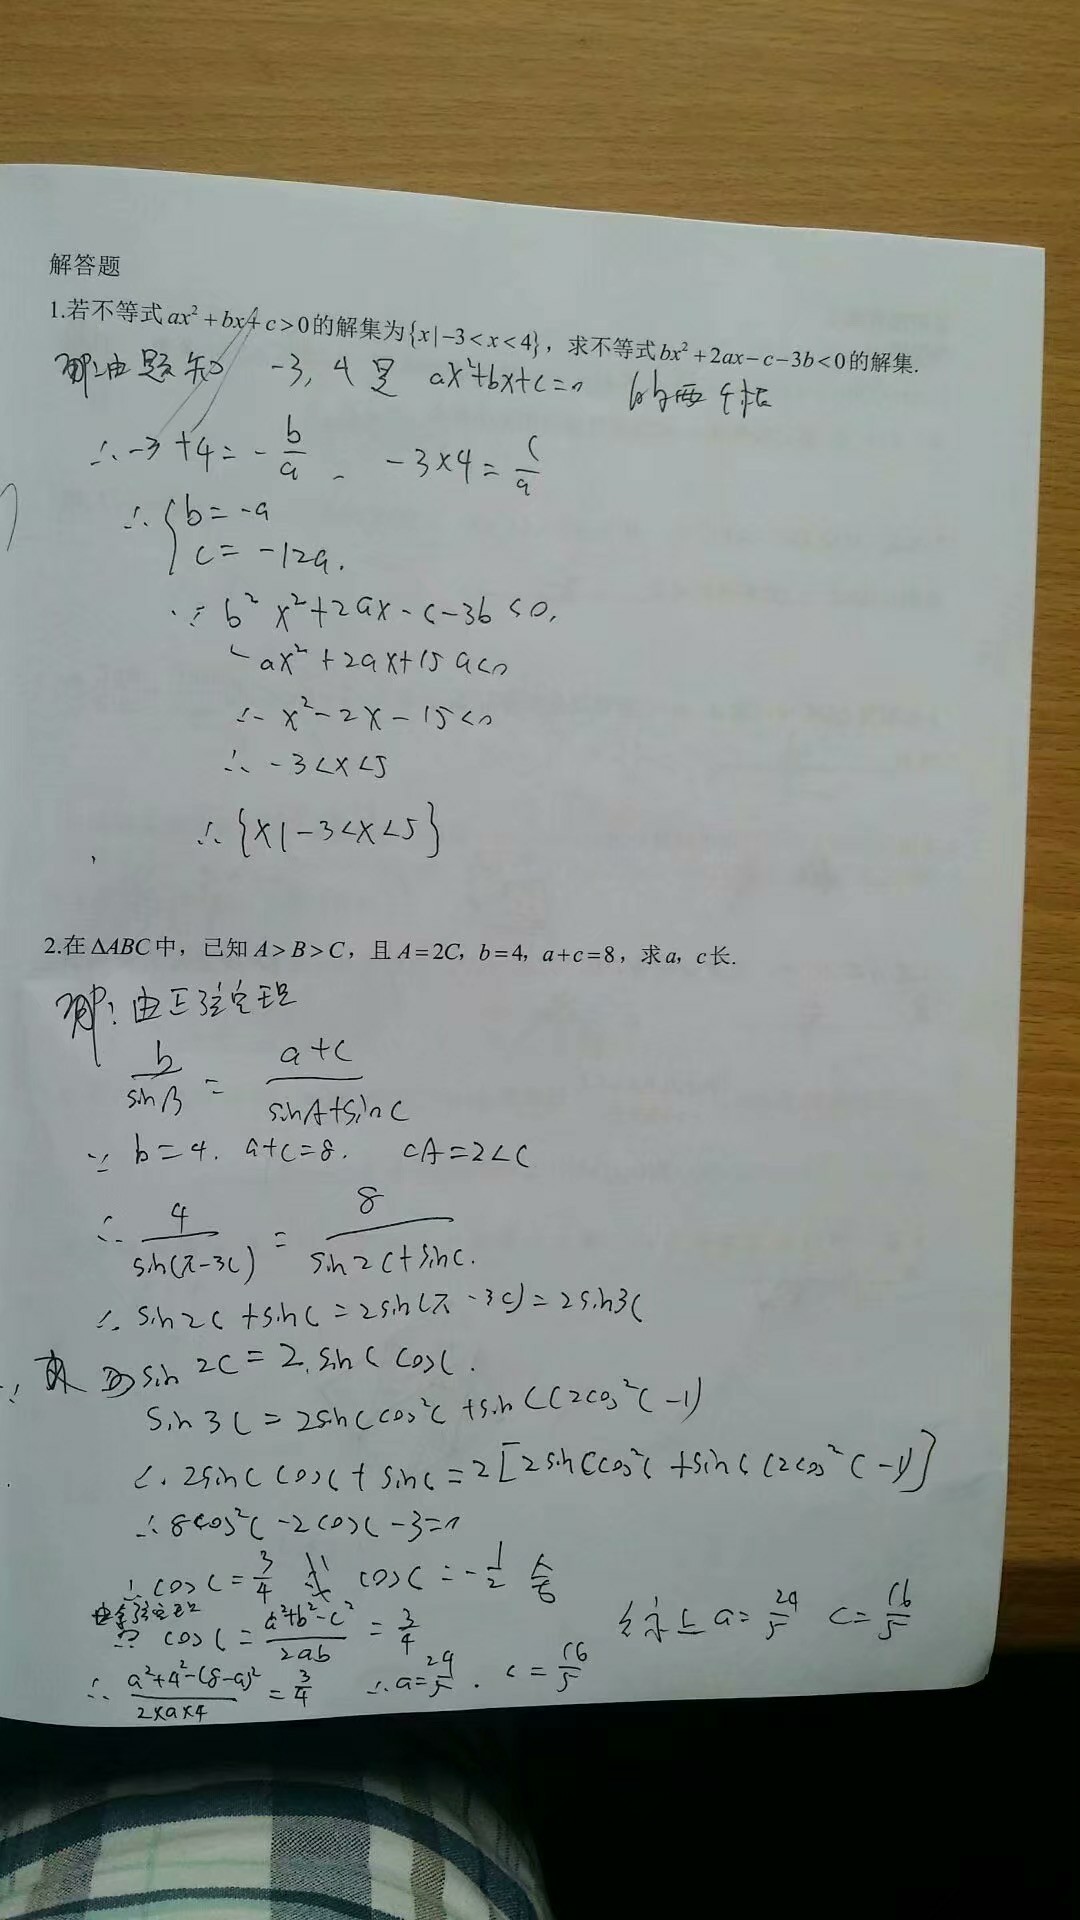 解答题
1.若不等式ax²+bx+c>0的解集为{x|-3<x<4}，求不等式bx²+2ax-c-3b<0的解集.
解:由题知 -3, 4是 ax²+bx+c=0 的两个根
∴ -3+4=-b/a, -3×4=c/a
∴ {b=-a
c=-12a.
∵ b² x²+2ax-c-3b<0,
-ax²+2ax+15a<0
∴ x²-2x-15<0
∴ -3<x<5
∴ {x|-3<x<5}
2.在ΔABC中，已知A>B>C，且A=2C，b=4，a+c=8，求a，c长.
解:由正弦定理
b/sinB = a+c/sinA+sinC
∵ b=4. a+c=8. ∠A=2∠C
∴ 4/sin(π-3C) = 8/sin2C+sinC.
∴ sin2C+sinC=2sin(π-3C)=2sin3C
∵ sin2C=2.sinC cosC.
sin3C=2sinCcos²C+sinC(2cos²C-1)
∴ 2sinCcosC+sinC=2[2sinCcos²C+sinC(2cos²C-1)]
∴ 8cos²C-2cosC-3=0
∴ cosC=3/4 或 cosC=-1/2 舍
由余弦定理
∵ cosC=a²+b²-c²/2ab=3/4
∴ a²+4²-(8-a)²/2×a×4=3/4 ∴ a=24/5. c=16/5
综上 a=24/5 c=16/5